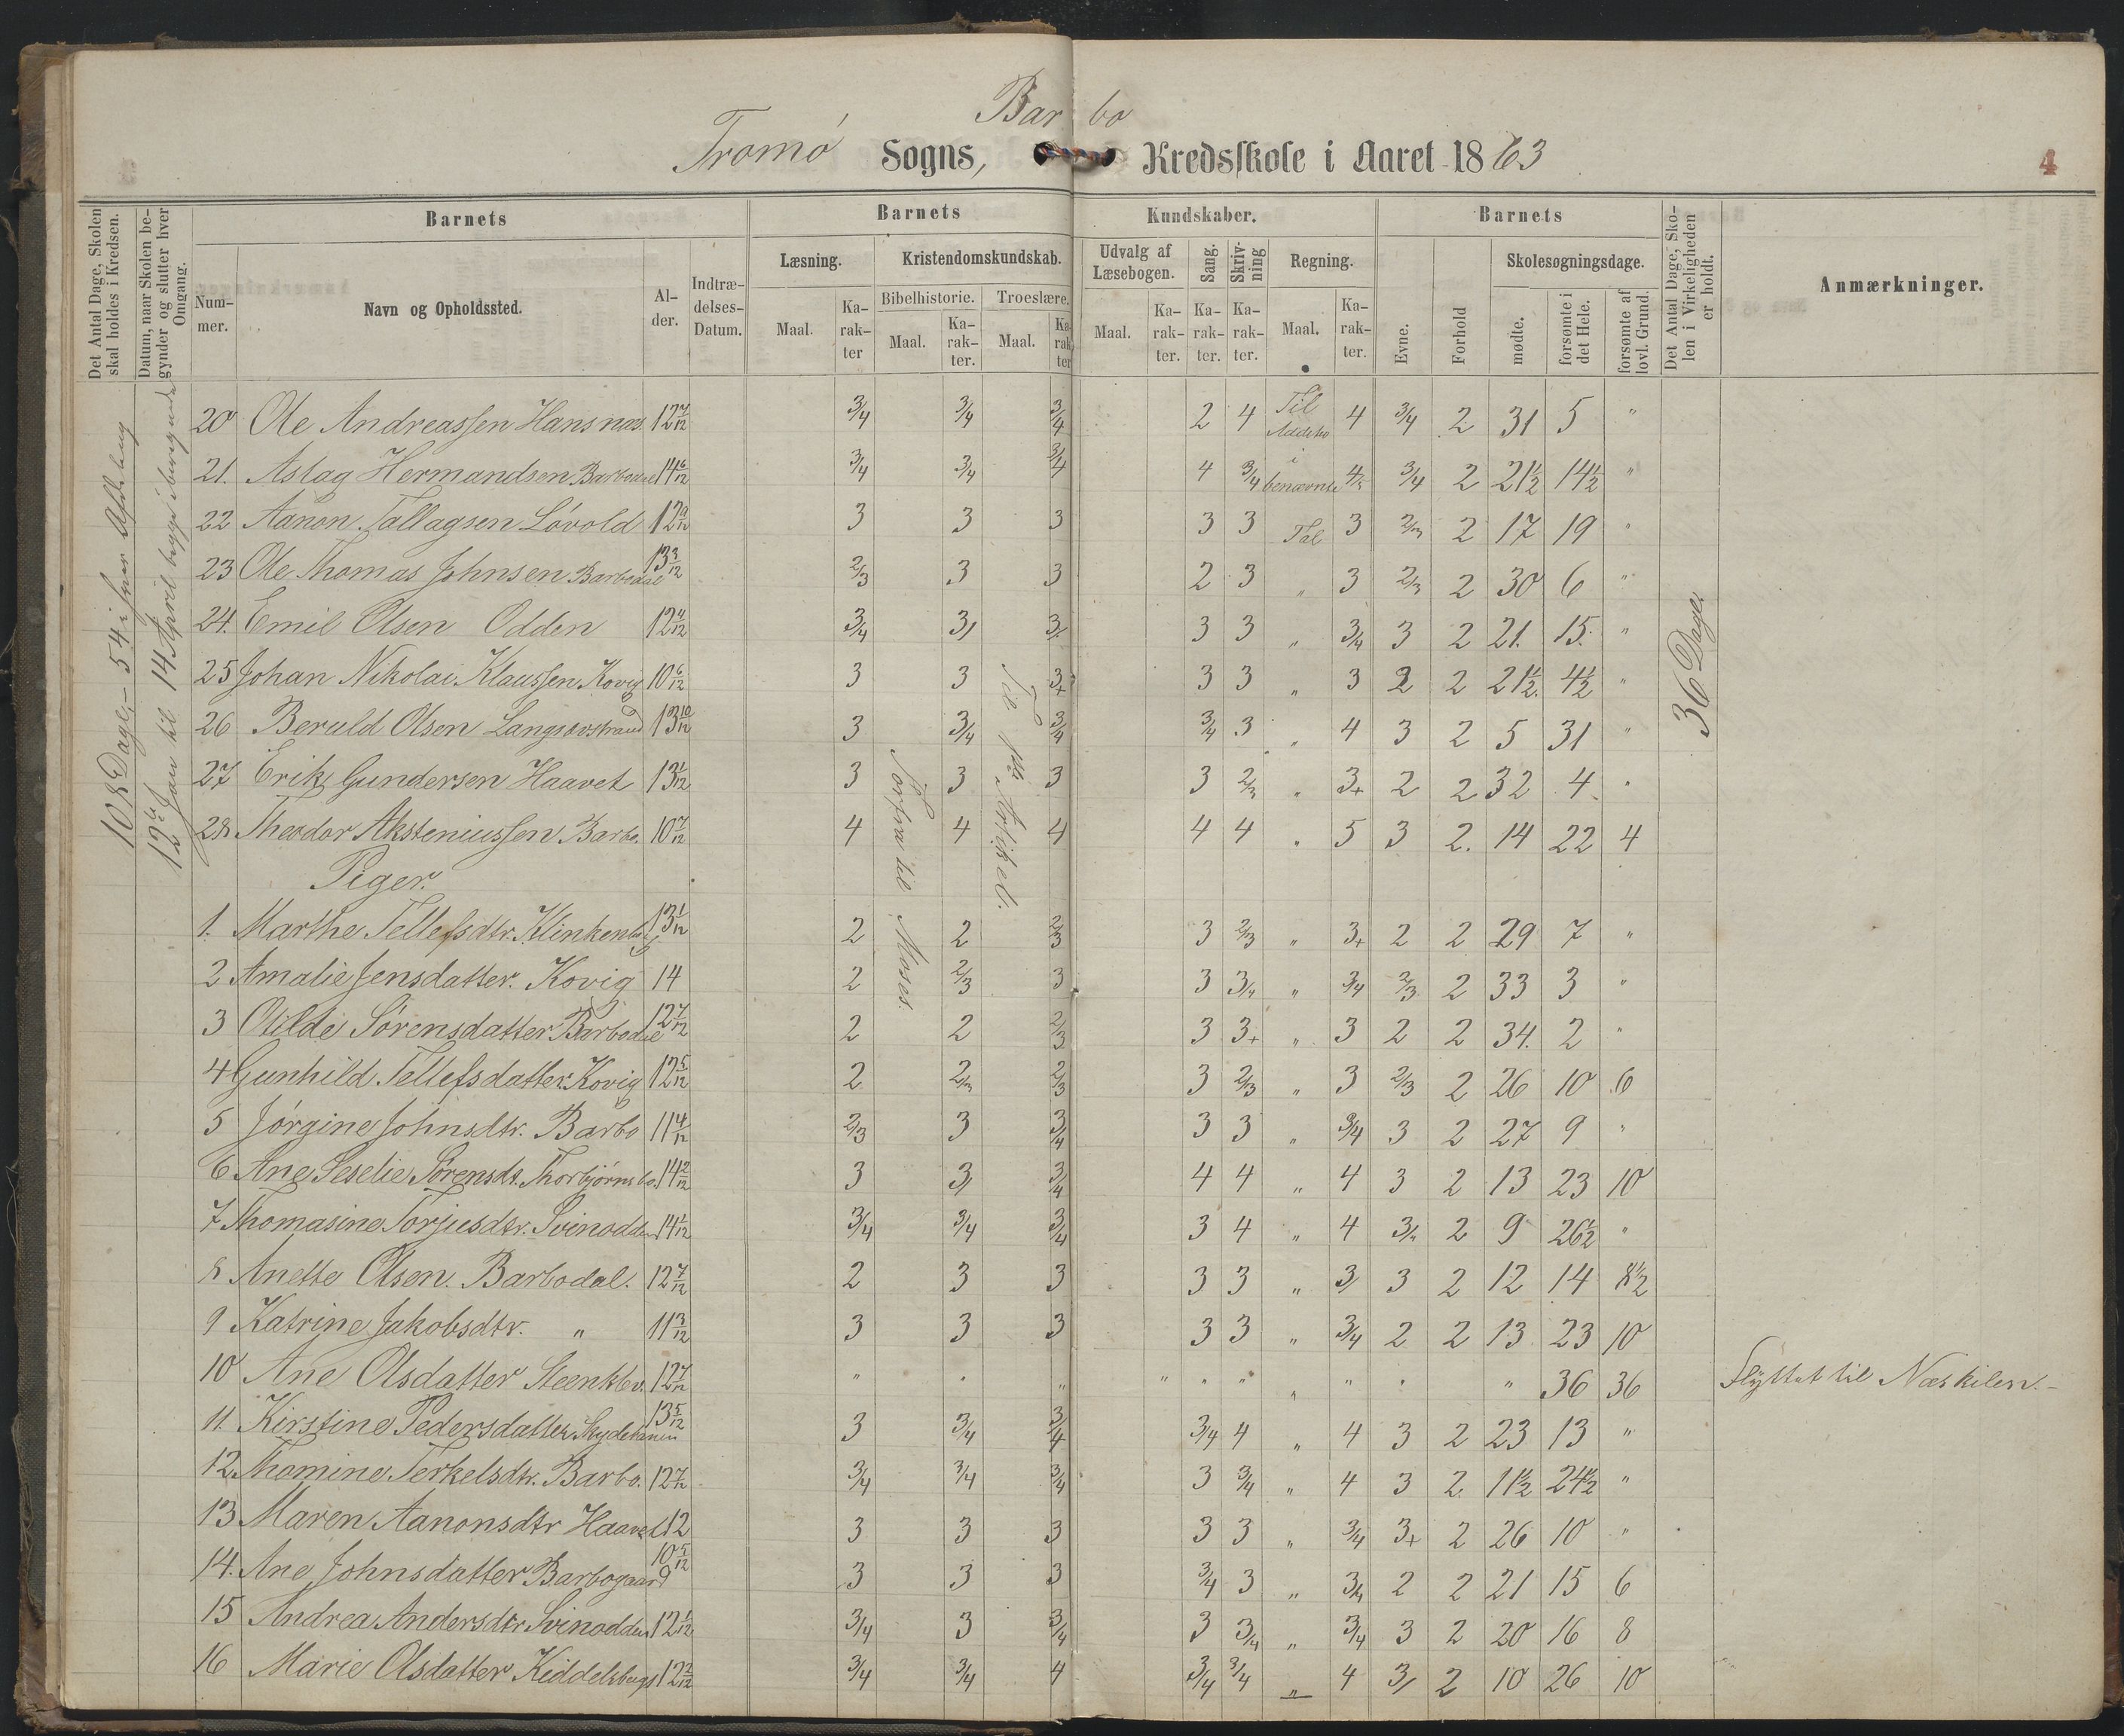 Barbo
Tromø Sogns, Kredsskole i Aaret 1863
4
Det Antal Dage, Skolen skal holdes i Kredsen.
Datum, naar Skolen begynder og slutter hver Omgang.
Barnets
Nummer.
Navn og Opholdssted.
Alder.
Indtrædelses-Datum.
Barnets Kundskaber.
Læsning.
Maal.
Karakter
Kristendomskundskab.
Bibelhistorie.
Maal.
Karakter.
Troeslære.
Maal.
Karakter
Udvalg af Læsebogen.
Maal.
Karakter.
Sang.
Karakter.
Skrivning
Karakter.
Regning.
Maal.
Karakter.
Barnets
Evne.
Forhold
Skolesøgningsdage.
mødte.
forsømte i det Hele.
forsømte af lovl. Grund.
Det Antal Dage, Skolen i Virkeligheden er holdt.
Anmærkninger.
108 Dage, - 54 i hver Afdeling
12te Jan til 14 April begge iberegnede
Forfra til Moses.
Til 3die Artikel.
Til Addition i benævnte Tal
36 Dage.
20 Ole Andreassen Hansnæs. 12 7/12 3/4 3/4 3/4 2 4 4 3/4 2 31 5 "
21. Aslag Hermandsen Barbodal 14 6/12 3/4 3/4 3/4 4 3/4 4/5 3/4 2 21½ 14½ "
22 Aanon Tallagsen Løvold 12 9/12 3 3 3 3 3 3 2/3 2 17 19 "
23 Ole Thomas Johnsen Barbodal 13 3/12 2/3 3 3 2 3 " 3 2/3 2 30 6 "
24. Emil Olsen Odden 12 4/12 3/4 3/ 3/ 3 3 " 3/4 3 2 21. 15. "
25 Johan Nikolai Klaussen Kovig 10 6/12 3 3 3+ 3 3 " 3 2 2 21½. 4½ "
26 Beruld Olsen Langsævstrand 13 10/12 3 3/4 3/4 3/4 3 " 4 3 2 5 31 "
27 Erik Gundersen Haavet 13 1/12 3 3 3 3 2/3 " 3+ 2 2 32 4. "
28 Theodor Aksteniussen Barbo. 10 7/12 4 4 4 4 4 " 5 3 2. 14 22 4
Piger.
1. Marthe Tellefsdtr. Klinkenberg 13 1/12 2 2 2/3 3 2/3 " 3+ 2 2 29 7 "
2 Amalie Jensdatter. Kovig 14 2 2/3 3 3 3/4 " 3/4 2/3 2 33 3 "
3 Olilde Sørensdatter Barbodal 12 7/12 2 2 2/3 3 3+ " 3 2 2 34. 2 "
4 Gunhild Tellefsdatter Kovig 12 5/12 2 2/3 2/3 3 2/3 " 3 2/3 2 26 10 6
5 Jørgine Johnsdtr. Barbo 11 4/12 2/3 3 3/4 3 3 " 3/4 3 2 27 9 "
6 Ane Seselie Sørensdt. Thorbjørnsbo. 14 2/12 3 3/ 3/4 4 4 " 4 3 2 13 23 10
7 Thomasine Torjusdtr. Svinodden 14 1/12 3/4 3/4 3/4 3 4 " 4 3/4 2 9 26½ "
8 Anette Olsen. Barbodal. 12 7/12 2 3 3 3 3 " 3/ 3 2 12 14 8½
9 Katrine Jakobsdtr. " 11 3/12 3 3 3 3 3 " 3/4 2 2 13 23 10
10 Ane Olsdatter Steenklev. 12 7/12 " " " " " " " " " " 36 36 Flyttet til Næskilen.-
11. Kirstine Pedersdatter Skydebanen 13 5/12 3 3/4 3/4 3/4 4 " 4 3 2 23 13 "
12. Thomine Terkelsdtr. Barbo. 12 7/12 3/4 3/4 3/4 3 3/4 " 4 3 2. 11½ 24½ "
13 Maren Aanonsdtr Haavet 12 3 3 3 3 3 " 3/4 3+ 2 26 10 "
14. Ane Johnsdatter Barbogaard 10 5/12 3 3 3 3/4 3 " 3/4 2 2 21 15 6
15 Andrea Andersdtr Svinodden 12 1/12 3/4 3 3/4 3 3/4 " 3/4 3 2 20 16 8
16 Marie Olsdatter Kiddelsbugt 12 2/12 3/4 3/4 4 3/4 3/4 " 4 3/ 2 10 26 10